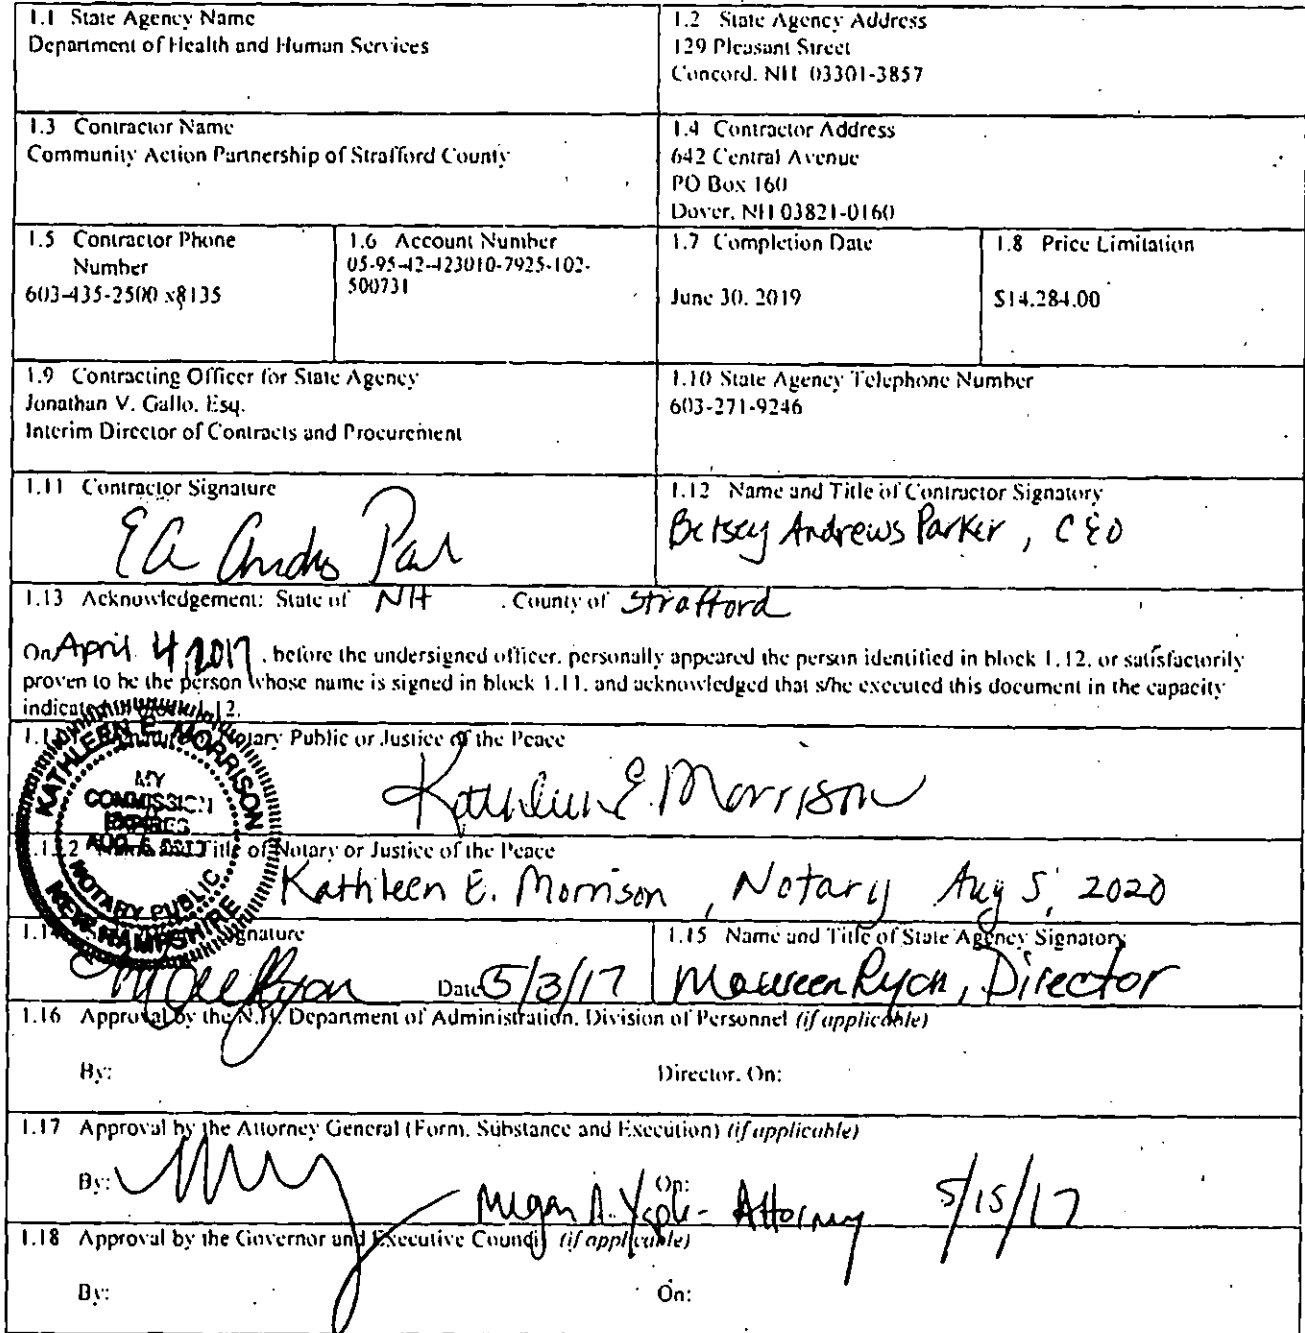 1.1 State Agency Name
Department of Health and Human Services
1.2 State Agency Address
129 Pleasant Street
Concord, NH 03301-3857
1.3 Contractor Name
Community Action Partnership of Strafford County
1.4 Contractor Address
642 Central Avenue
PO Box 160
Dover, NH 03821-0160
1.5 Contractor Phone
Number
603-435-2500 x8135
1.6 Account Number
05-95-42-423010-7925-102-
500731
1.7 Completion Date
June 30, 2019
1.8 Price Limitation
$14,284.00
1.9 Contracting Officer for State Agency
Jonathan V. Gallo, Esq.
Interim Director of Contracts and Procurement
1.10 State Agency Telephone Number
603-271-9246
1.11 Contractor Signature
1.12 Name and Title of Contractor Signatory
Betsey Andrews Parker, CEO
1.13 Acknowledgement: State of NH , County of Strafford
On April 4, 2017, before the undersigned officer, personally appeared the person identified in block 1.12, or satisfactorily
proven to be the person whose name is signed in block 1.11, and acknowledged that s/he executed this document in the capacity
indicated 12.
Notary Public or Justice of the Peace
Kathleen E. Morrison
KATHLEEN E. MORRISON
MY
COMMISSION
EXPIRES
NOTARY PUBLIC
NEW HAMPSHIRE
1.13.2 Name and Title of Notary or Justice of the Peace
Kathleen E. Morrison, Notary Aug 5, 2020
1.14 Signature
Date 5/3/17
1.15 Name and Title of State Agency Signatory
Maureen Ryan, Director
1.16 Approval by the N.H. Department of Administration, Division of Personnel (if applicable)
By: Director, On:
1.17 Approval by the Attorney General (Form, Substance and Execution) (if applicable)
By: On:
Megan A. - Attorney 5/15/17
1.18 Approval by the Governor and Executive Council (if applicable)
By: On: